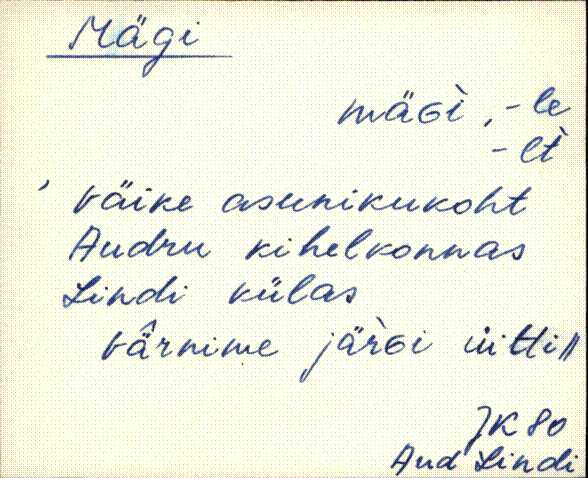 Mägi
mäGì, -le
-lt̀
väike asunikukoht
Audru kihelkonnas
Lindi külas
vä̂rnime jär̀Gi üitti॥
JK 80
Aud Lindi